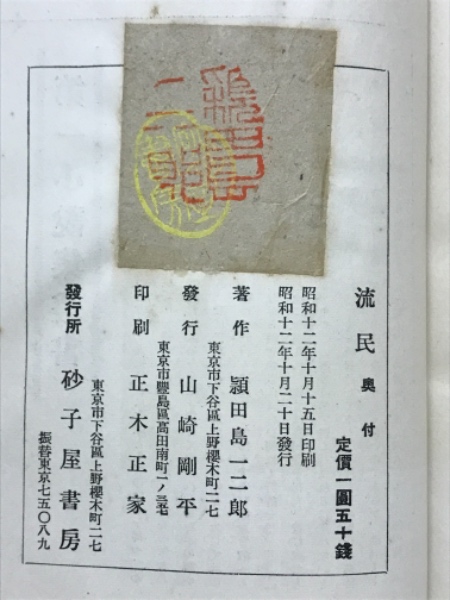 流民 奥付
定價一圓五十錢
昭和十二年十月十五日印刷
昭和十二年十月二十日發行
著作 潁田島一二郎
東京市下谷區上野櫻木町二七
發行 山崎剛平
東京市豐島區高田南町一ノ三五七
印刷 正木正家
東京市下谷區上野櫻木町二七
發行所 砂子屋書房
振替東京七五〇八九